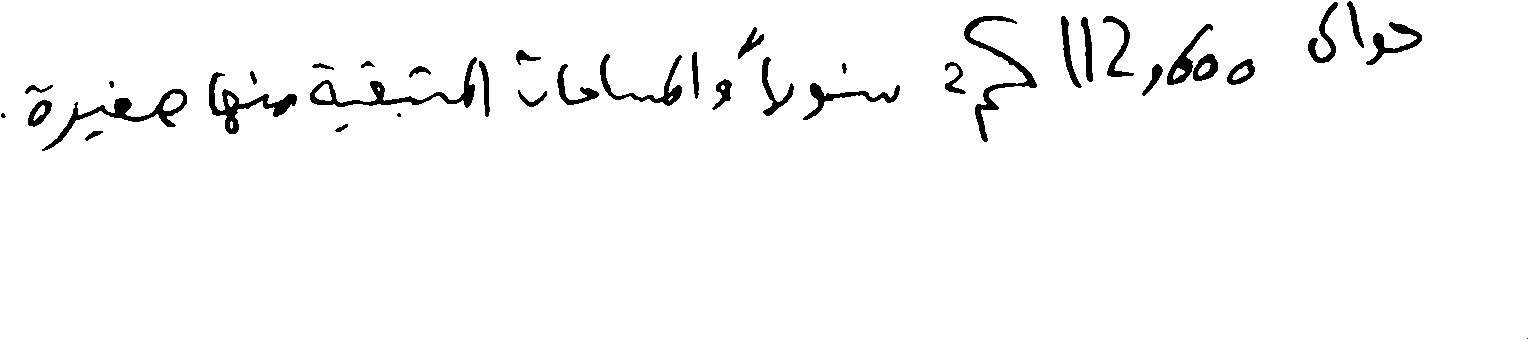 حوالى 112,600 كم2 سنويا والمساحات المتبقية منها صغيرة.